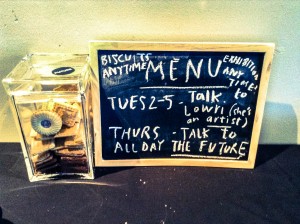 BISCUITS ANYTIME
MENU
EXHIBITION ANY TIME!
TUES 2-5 - Talk to
Lowri (she's
an artist)
THURS - TALK TO
ALL DAY THE FUTURE